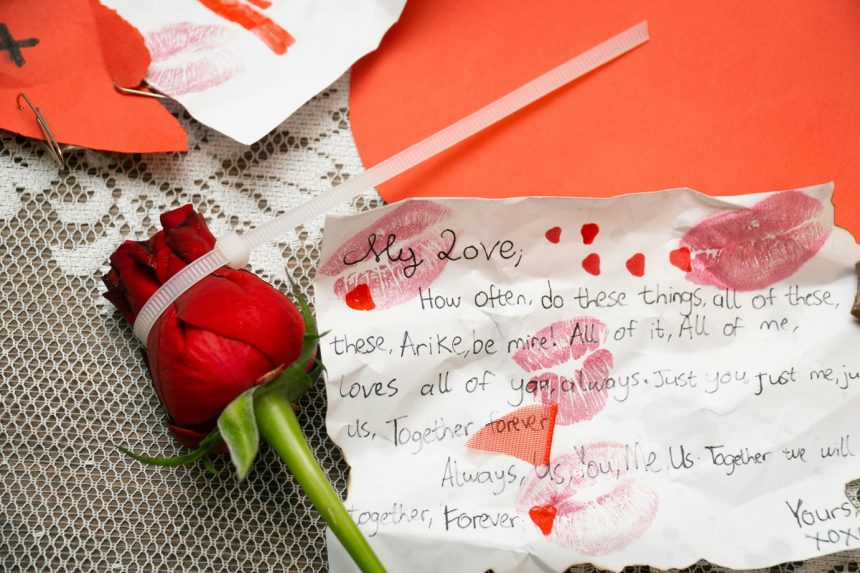 My Love,
How often, do these things, all of these,
these, Arike, be mine! All of it, All of me,
loves all of you, always. Just you, just me, ju
us, Together forever
Always, Us, You, Me, Us. Together we will
together, Forever.
Yours
xox